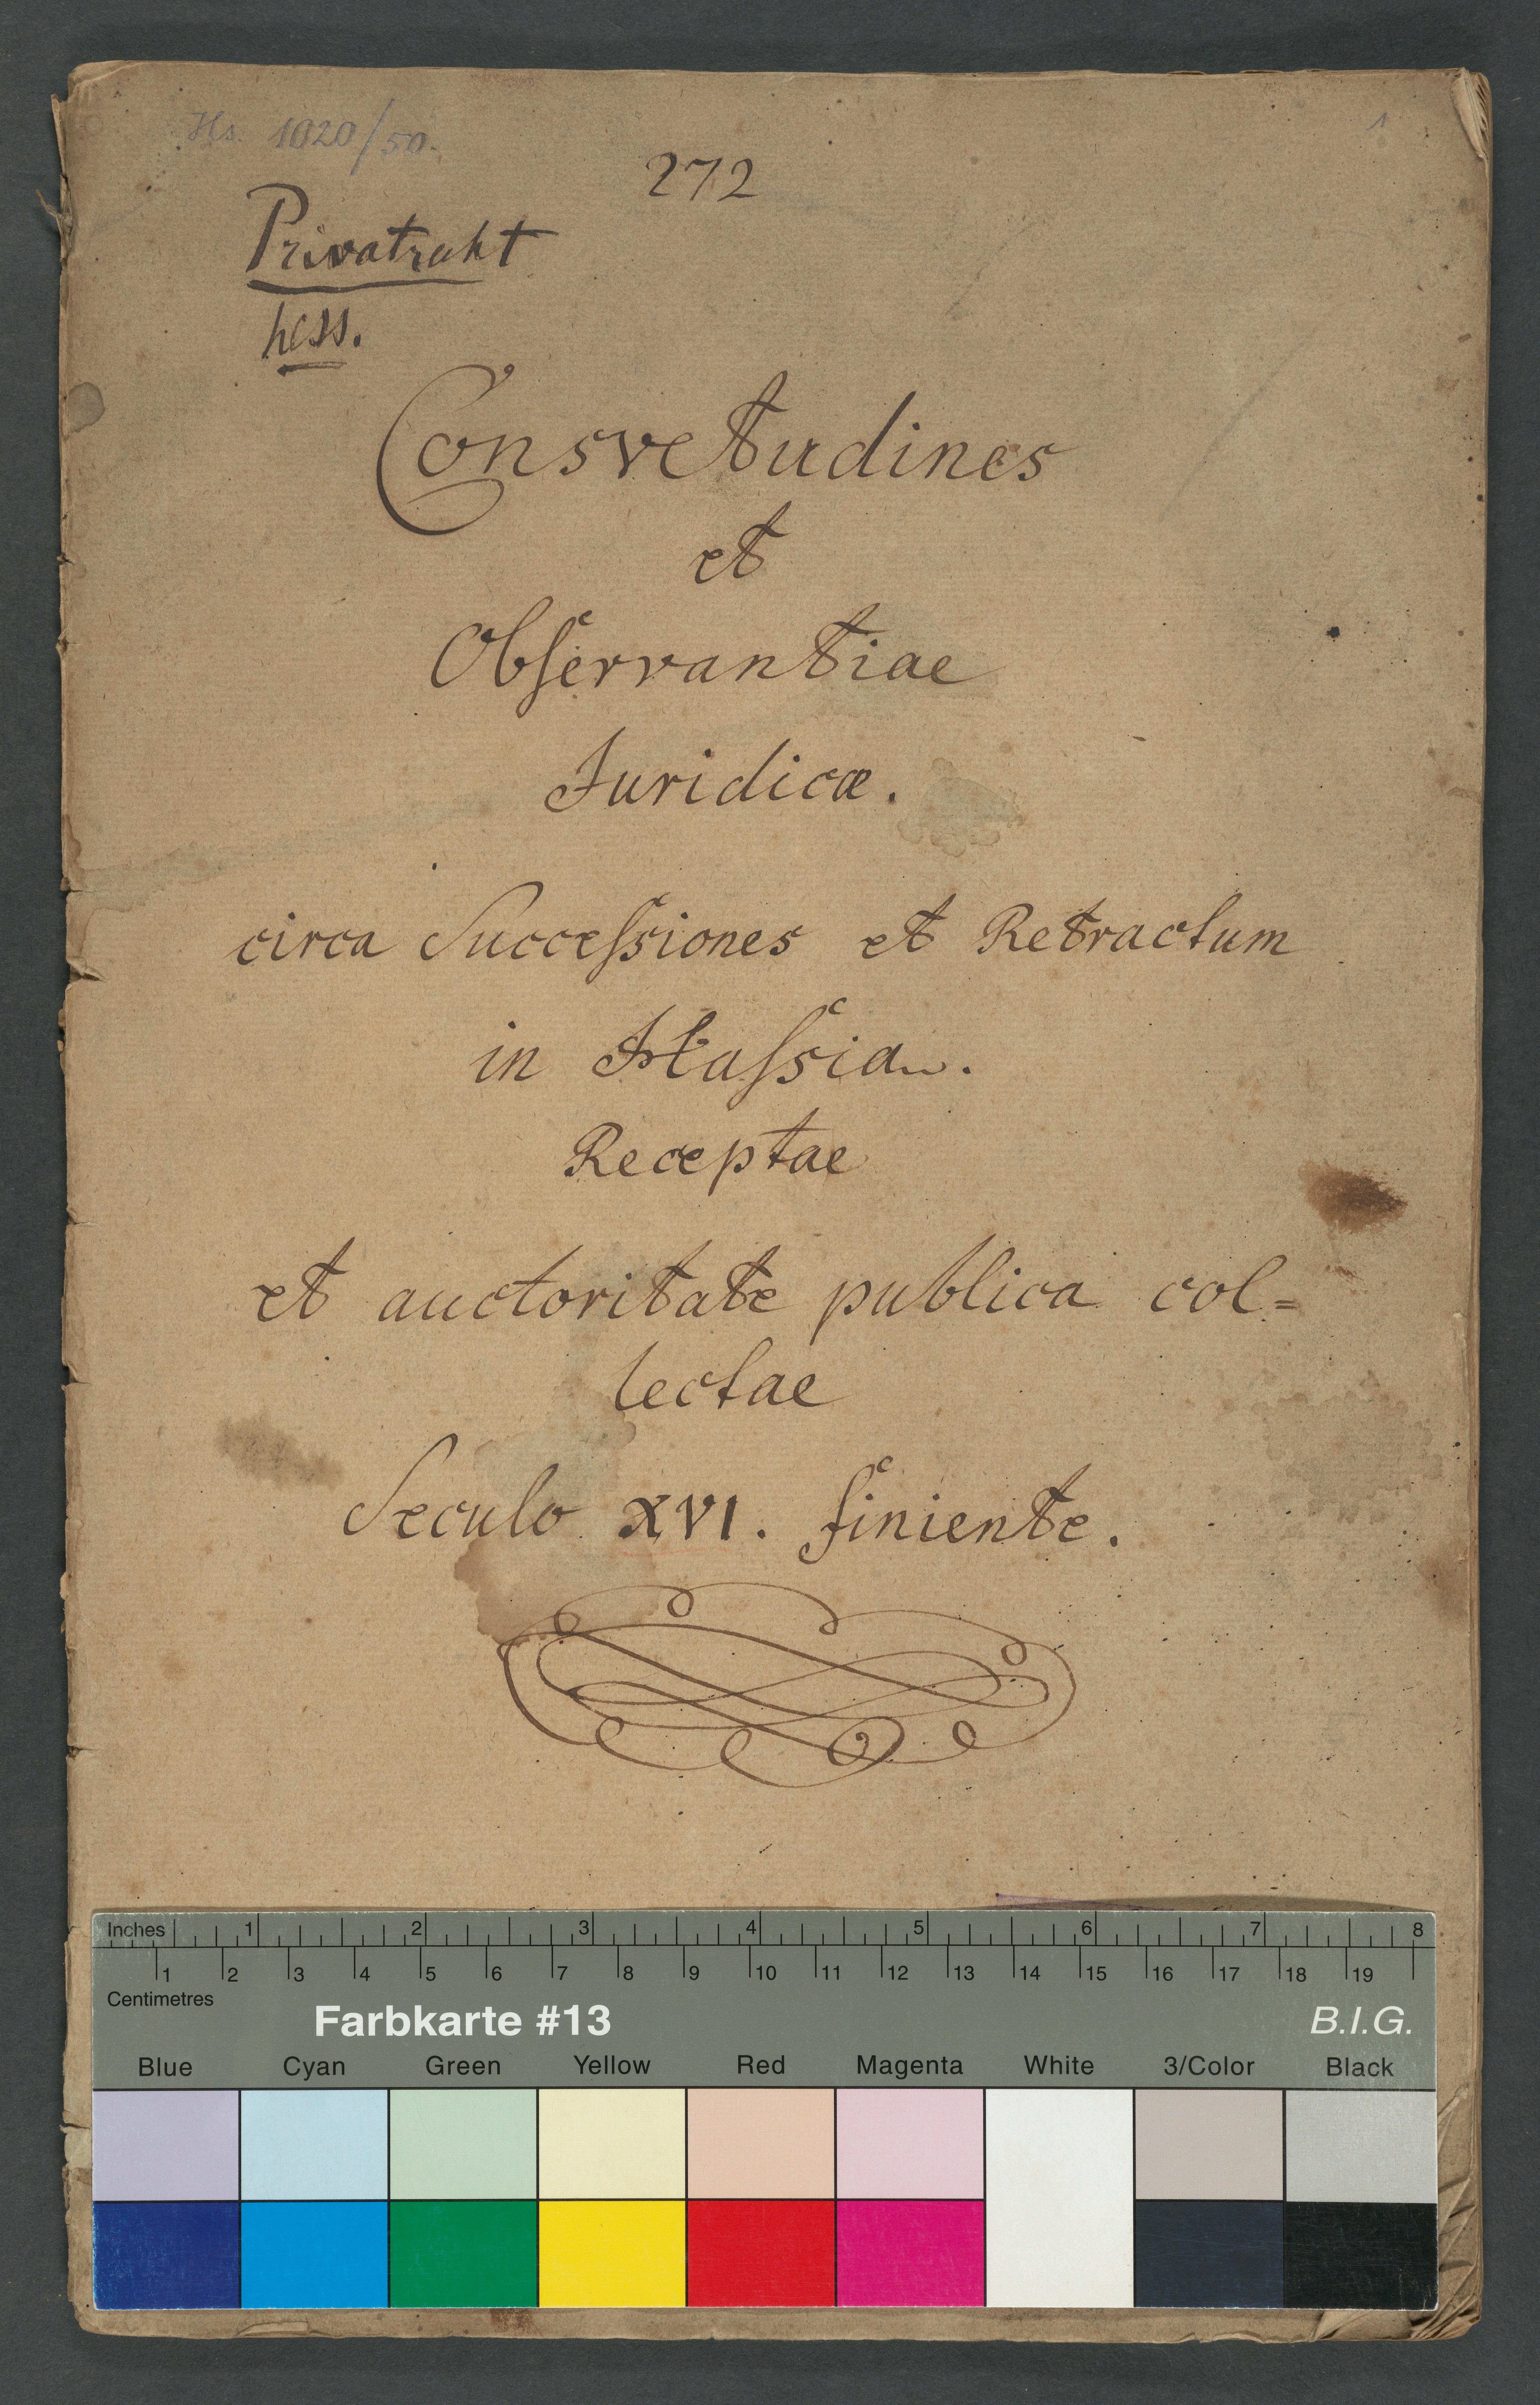 Hs. 1020/50.
1
272
Privatrecht
hess.
Consvetudines
et
Obſervantiae
Juridicæ.
circa Succeſsiones et Retractum
in Haſsia.
Receptae
et auctoritate publica col=
lectae
Seculo XVI. finiente.
Inches 1 2 3 4 5 6 7 8
1 2 3 4 5 6 7 8 9 10 11 12 13 14 15 16 17 18 19
Centimetres
Farbkarte #13 B.I.G.
Blue Cyan Green Yellow Red Magenta White 3/Color Black